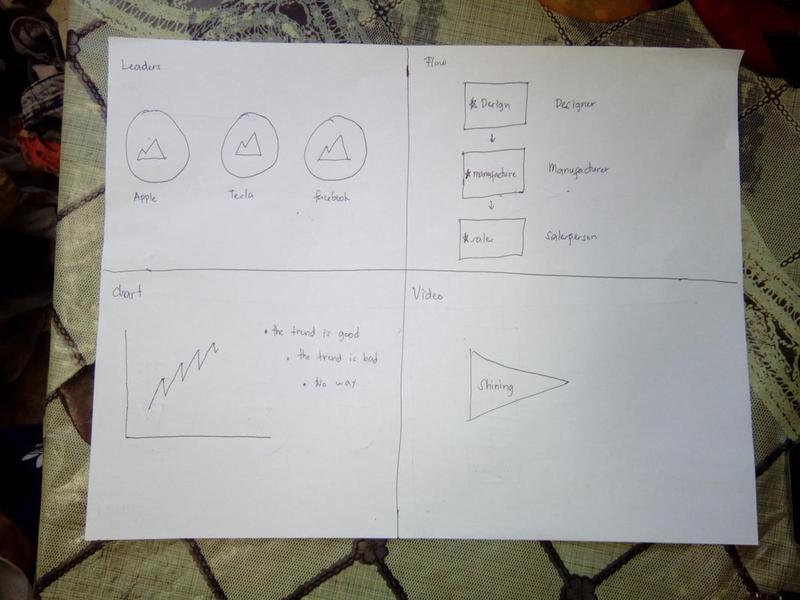 Leaders
Apple
Tesla
facebook
Flow
Design
Designer
manufacture
Manufacturer
sales
Salesperson
Chart
• the trend is good
• the trend is bad
• No way
Video
Shining